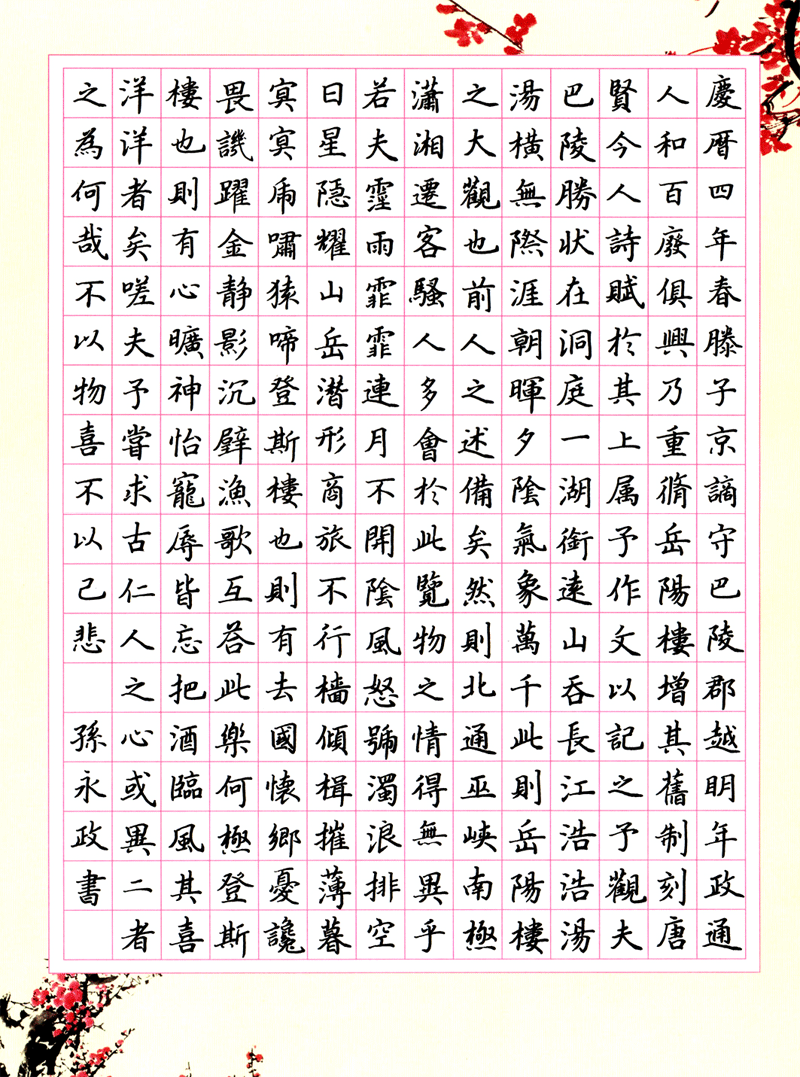 慶曆四年春滕子京謫守巴陵郡越明年政通
人和百廢俱興乃重脩岳陽樓增其舊制刻唐
賢今人詩賦於其上属予作文以記之予觀夫
巴陵勝状在洞庭一湖銜遠山吞長江浩浩湯
湯橫無際涯朝暉夕陰氣象萬千此則岳陽樓
之大觀也前人之述備矣然則北通巫峽南極
瀟湘遷客騷人多會於此覽物之情得無異乎
若夫霪雨霏霏連月不開陰風怒號濁浪排空
日星隱耀山岳潛形商旅不行檣傾楫摧薄暮
冥冥虎嘯猿啼登斯樓也則有去國懷鄉憂讒
畏譏躍金靜影沉璧漁歌互荅此樂何極登斯
樓也則有心曠神怡寵辱皆忘把酒臨風其喜
洋洋者矣嗟夫予嘗求古仁人之心或異二者
之為何哉不以物喜不以己悲 孫永政書